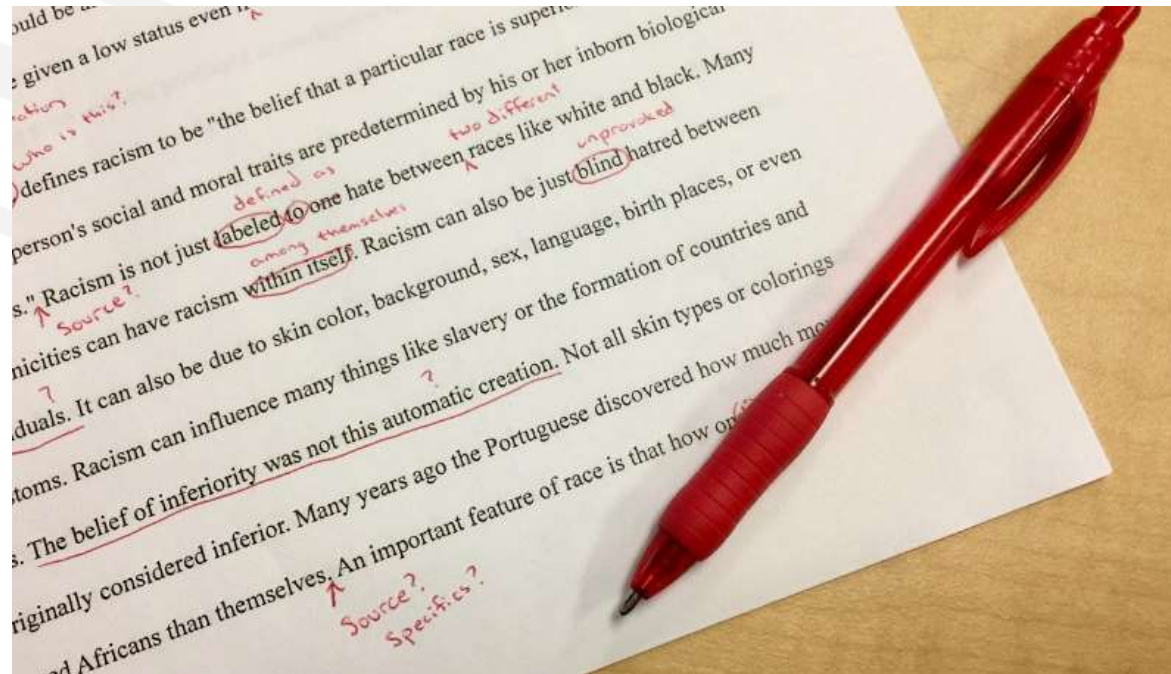 ould be
e given a low status even
ation
who is this?
defines racism to be "the belief that a particular race is superio
person's social and moral traits are predetermined by his or her inborn biological
defined as
two different
s." Racism is not just labeled to one hate between races like white and black. Many
Source?
among themselves
unprovoked
nicities can have racism within itself. Racism can also be just blind hatred between
?
duals. It can also be due to skin color, background, sex, language, birth places, or even
toms. Racism can influence many things like slavery or the formation of countries and
?
s. The belief of inferiority was not this automatic creation. Not all skin types or colorings
riginally considered inferior. Many years ago the Portuguese discovered how much mo
d Africans than themselves. An important feature of race is that how on
Source?
Specifics?